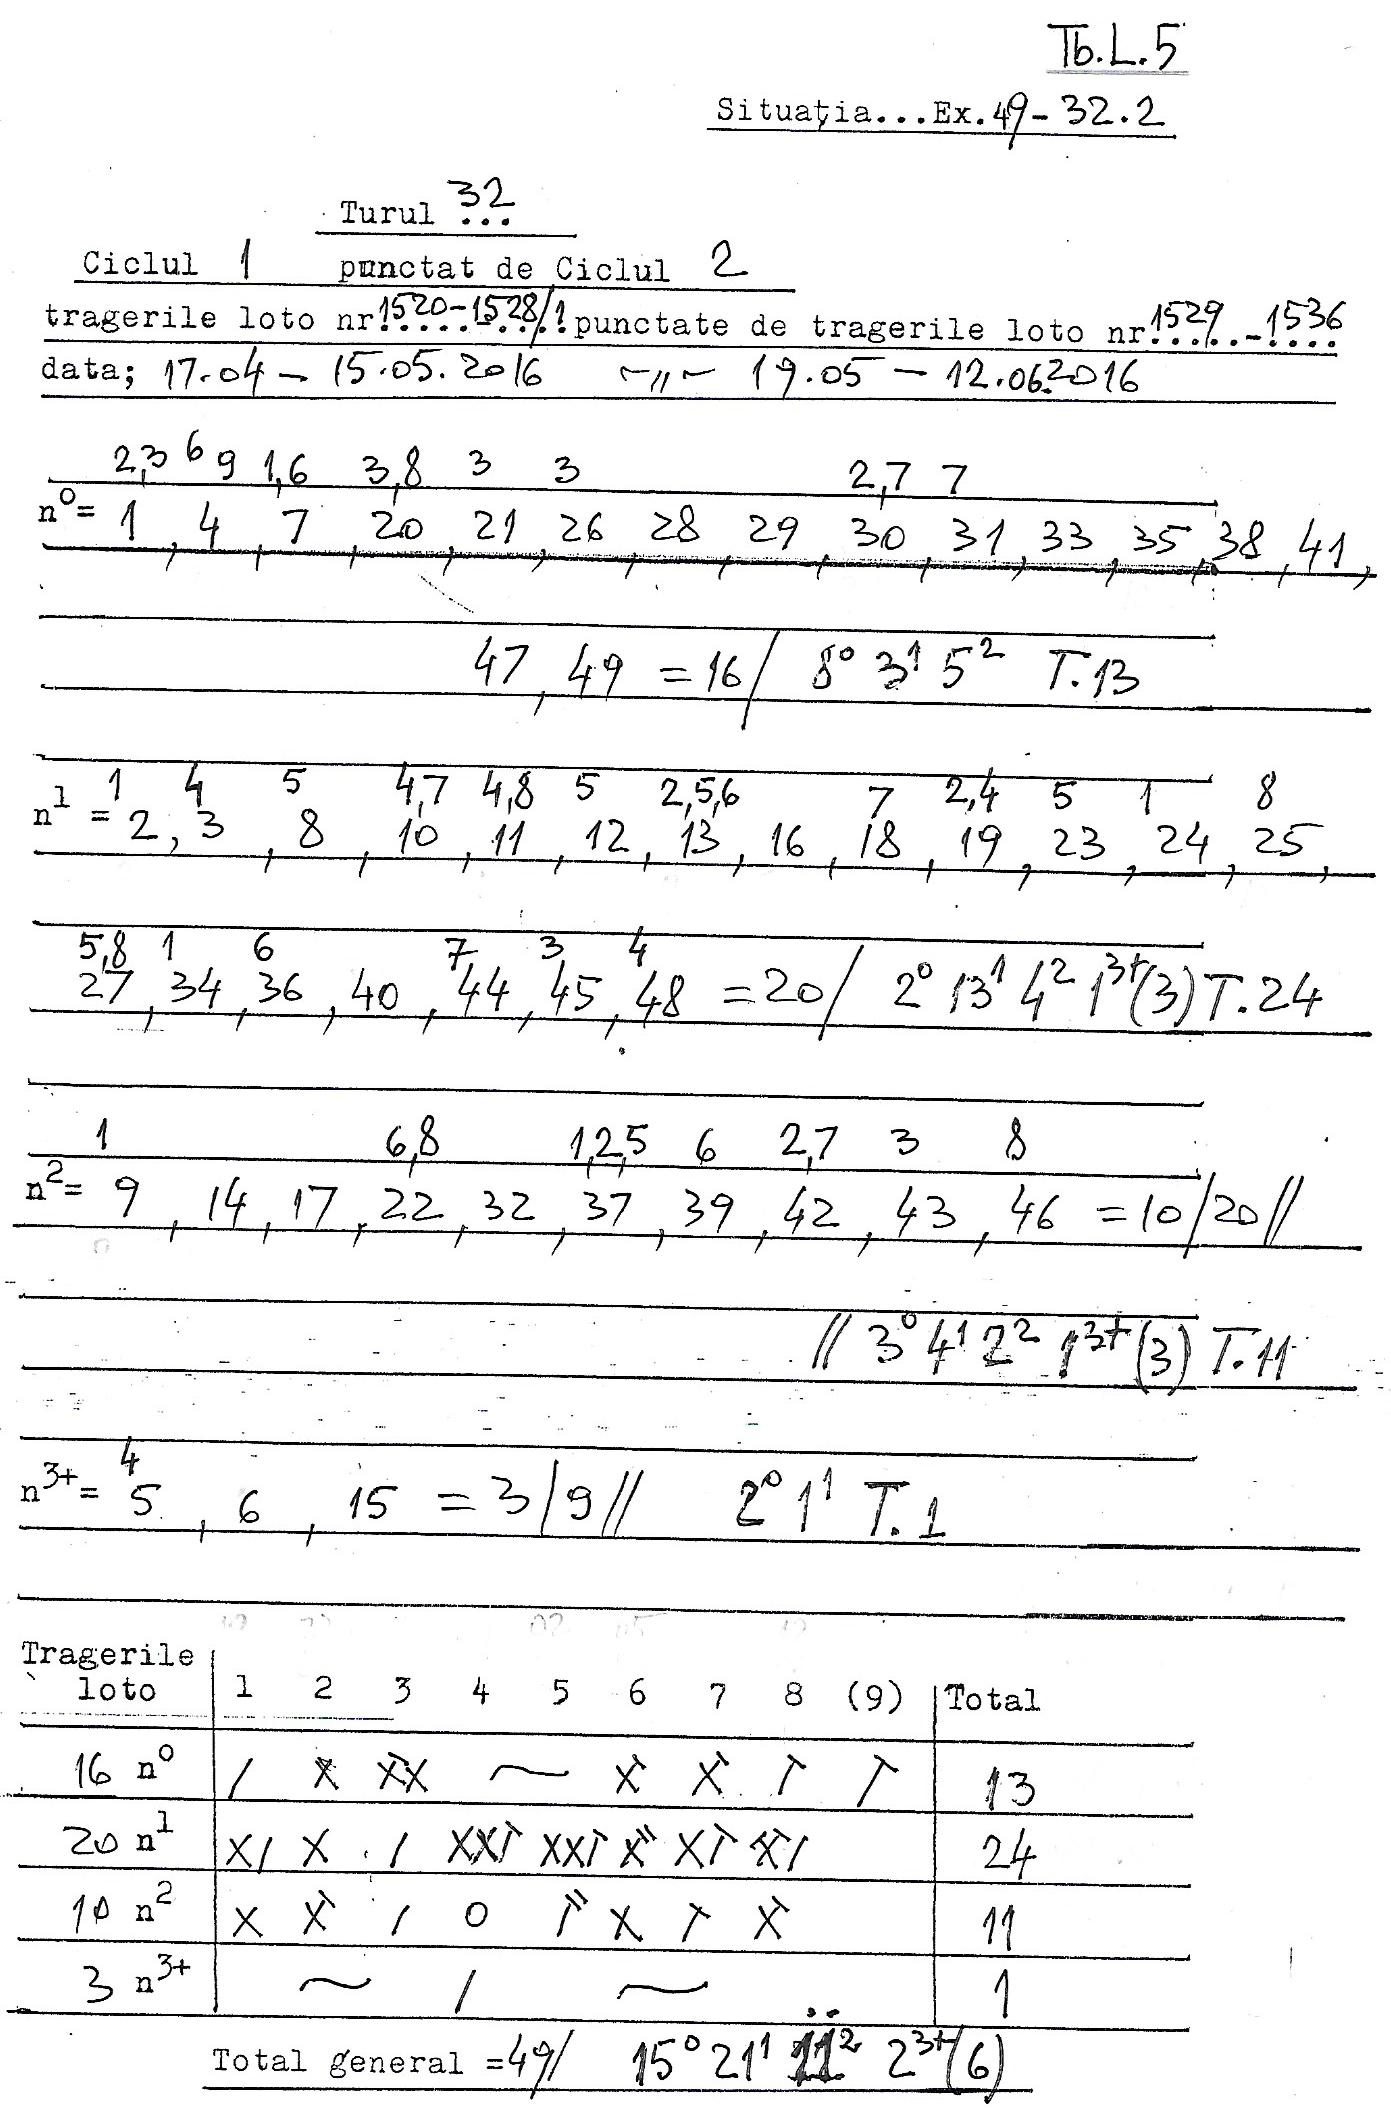 Tb.L.5
Situația...Ex.49-32.2
Turul 32
Ciclul 1 punctat de Ciclul 2
tragerile loto nr.1520-1528/1.punctate de tragerile loto nr.1529-1536
data; 17.04 - 15.05.2016 ~〃~ 19.05 - 12.06.2016
2,3 6 9 1,6 3,8 3 3 2,7 7
n⁰= 1, 4, 7, 20, 21, 26, 28, 29, 30, 31, 33, 35, 38, 41,
47, 49 = 16/ 8⁰ 3¹ 5² T.13
1 4 5 4,7 4,8 5 2,5,6 7 2,4 5 1 8
n¹ = 2, 3, 8, 10, 11, 12, 13, 16, 18, 19, 23, 24, 25,
5,8 1 6 7 3 4
27, 34, 36, 40, 44, 45, 48 = 20/ 2⁰ 13¹ 4² 1³⁺(3) T.24
1 6,8 1,2,5 6 2,7 3 8
n²= 9, 14, 17, 22, 32, 37, 39, 42, 43, 46 = 10/20//
// 3⁰ 4¹ 2² 1³⁺(3) T.11
4
n³⁺= 5, 6, 15 = 3/9// 2⁰ 1¹ T.1
Tragerile
loto 1 2 3 4 5 6 7 8 (9) Total
16 n⁰ 13
20 n¹ 24
10 n² 0 11
3 n³⁺ 1
Total general =49/ 15⁰ 21¹ 11² 2³⁺(6)